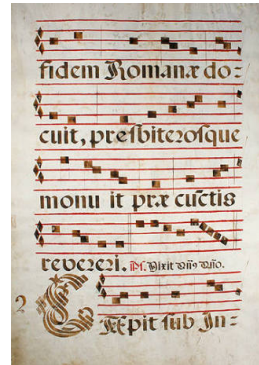 fidem Romanæ do=
cuit, presbiterosque
monu it præ cuctis
revereri. Ps. Dixit Dn̄s Dn̄o.
2
CÆpit sub In=